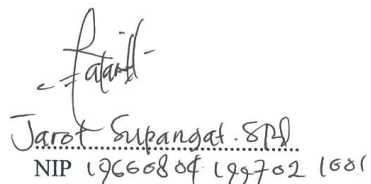 Jarot Supangat. SPd
NIP 19660804 199702 1001